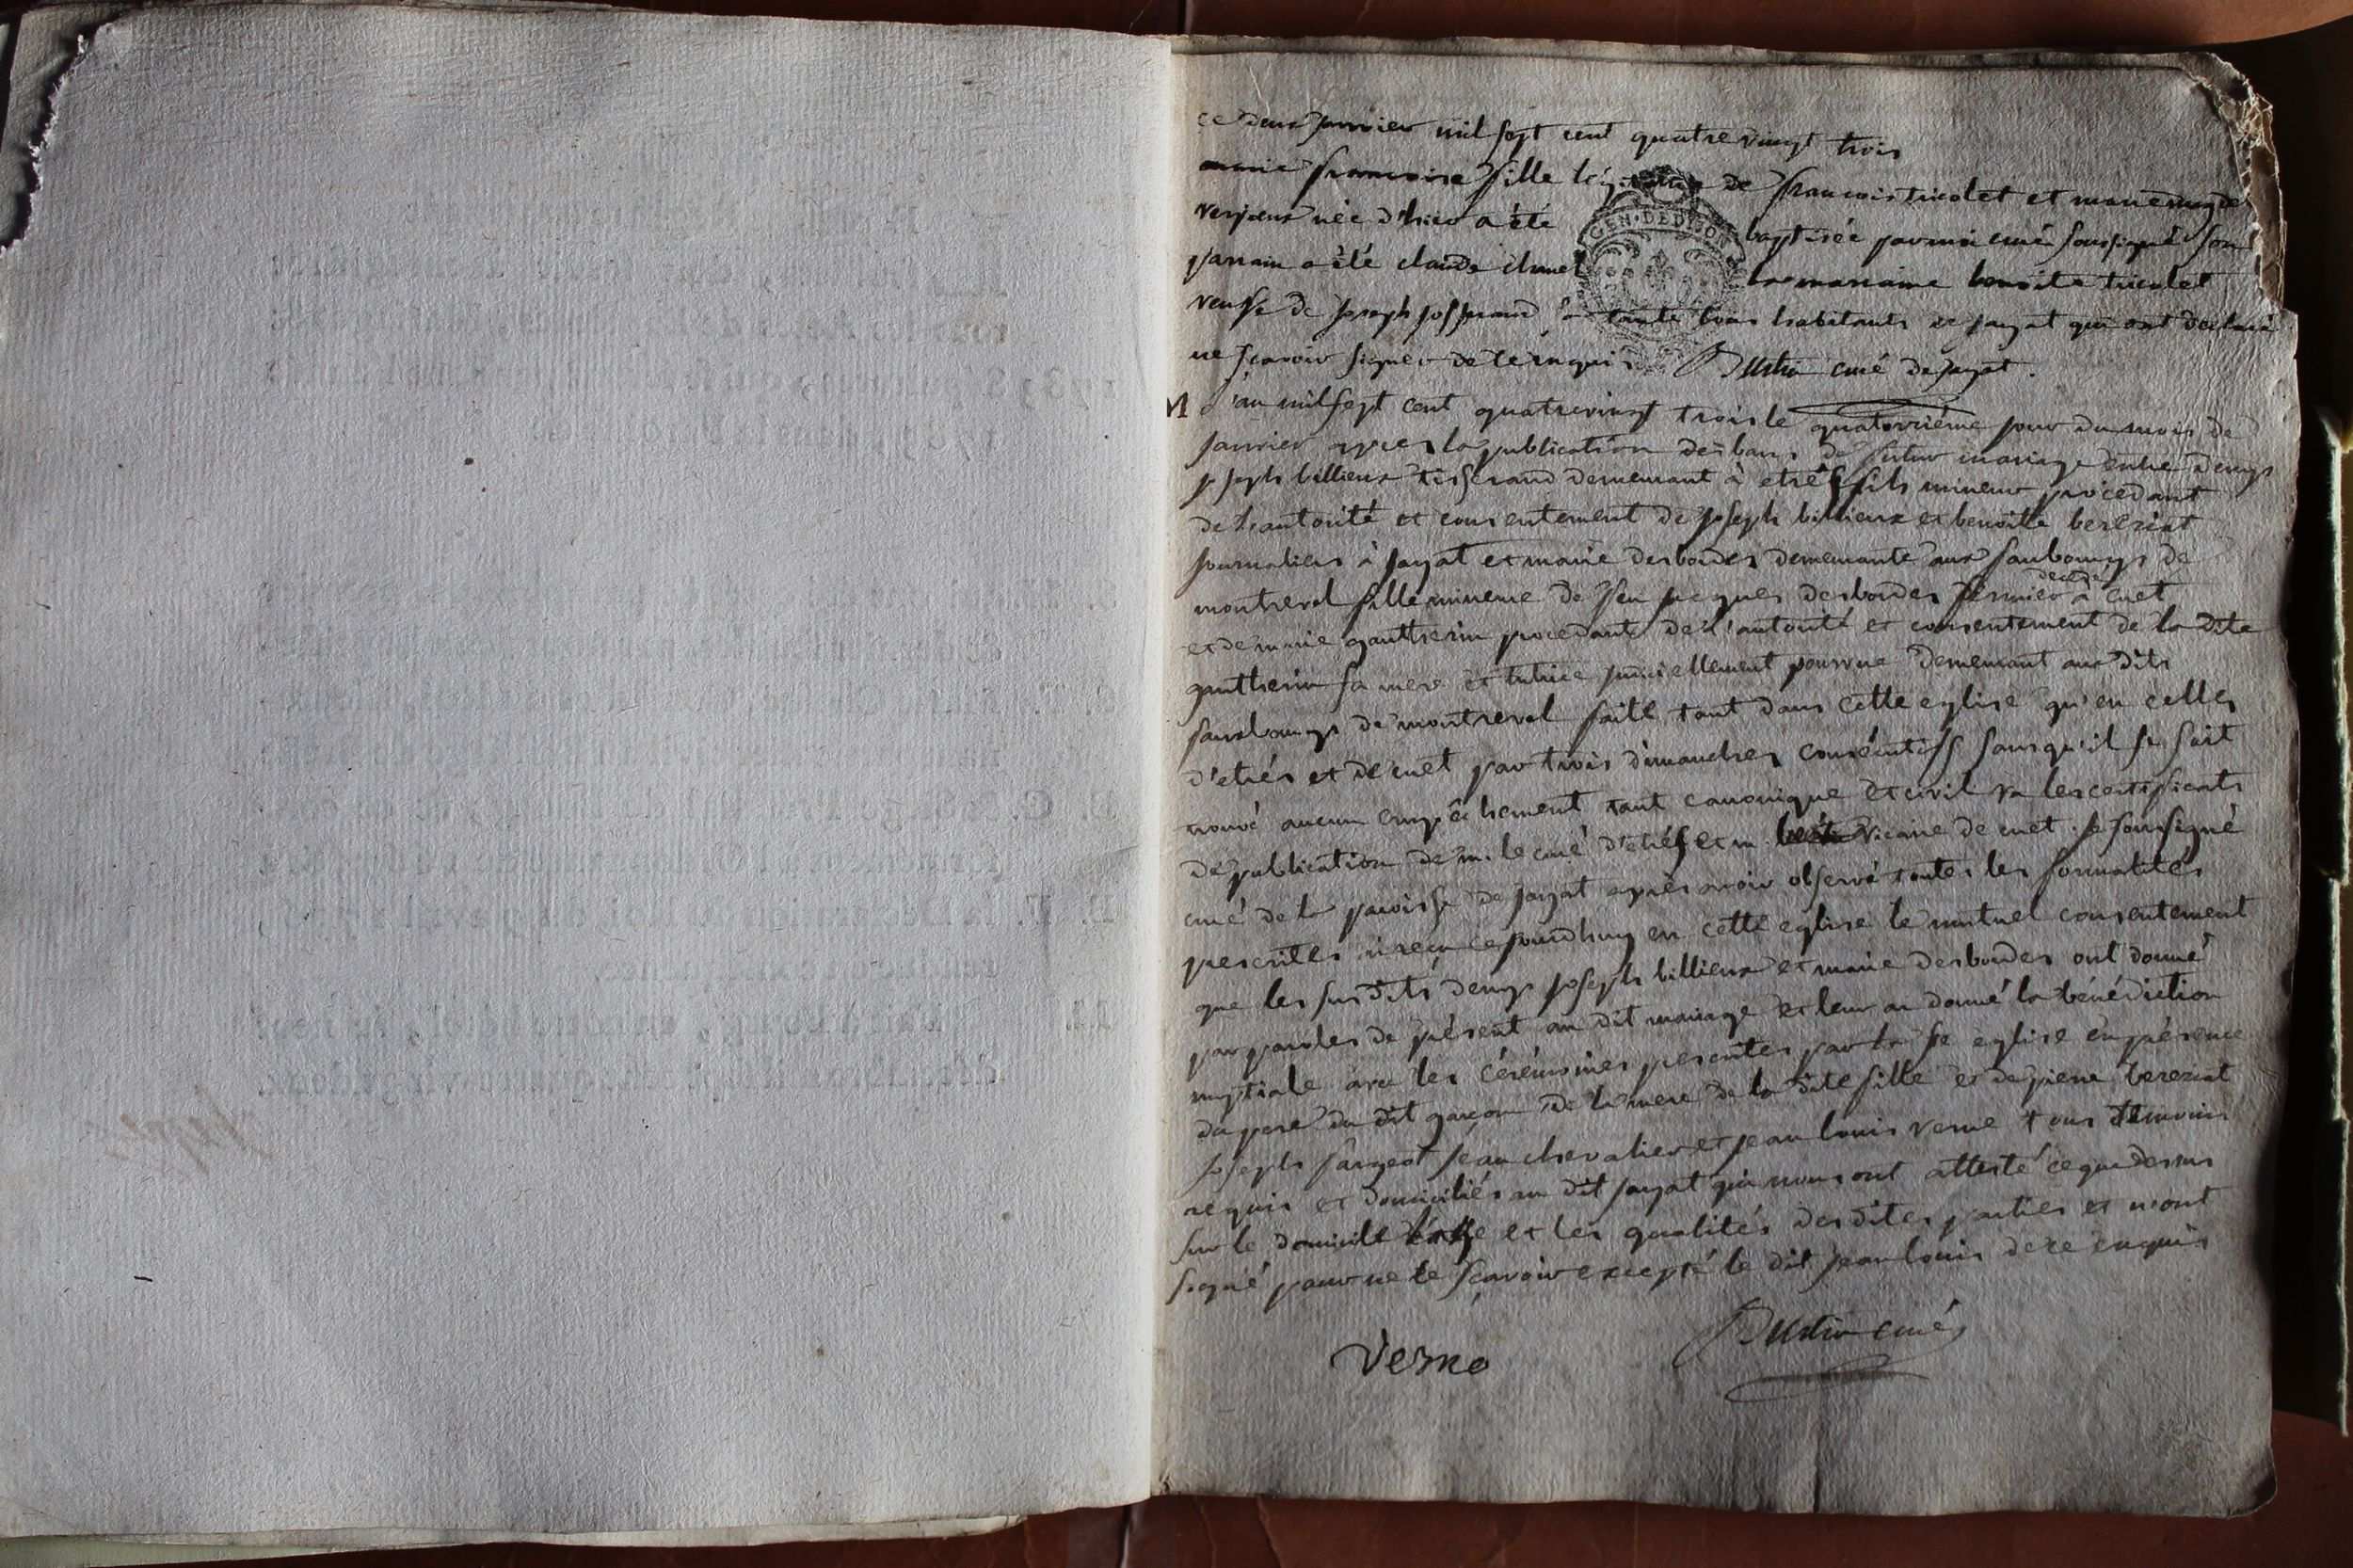 ce deux janvier mil sept cent quatre vingt trois
marie francoise fille légitime de francois tricolet et marie
née d'hier a été baptisée par moi curé soussigné son
GEN. DE DIJON
parrain a été claude la marraine benoite tricolet
veuve de joseph sa tante tous habitants de jayat qui ont declaré
ne scavoir signer de ce enquis curé de jayat.
M l'an mil sept cent quatrevingt trois le quatorzième jour du mois de
janvier apres la publication des bans de futur mariage entre denys
joseph billieux tisserand demeurant à etrés fils mineur procedant
de l'autorité et consentement de joseph billieux et benoitte bereziat
journaliers à jayat et marie desbordes demeurante aux faubourgs de
montrevel fille mineure de feu jacques desbordes fermier decedé à cuet
et de marie gautherin procedante de l'autorité et consentement de la dite
gautherin sa mere et tutrice judiciellement pourvue demeurant aux dits
faubourgs de montrevel faite tant dans cette eglise qu'en celles
d'etrés et de cuet par trois dimanches consécutifs sans qu'il se soit
trouvé aucun empêchement tant canonique et civil vu les certificats
de publication de m. le curé d'etrés et m. vicaire de cuet. je soussigné
curé de la paroisse de jayat après avoir observé toutes les formalités
prescrites ai reçu ce jourdhuy en cette eglise le mutuel consentement
que les susdits denys joseph billieux et marie desbordes ont donné
par paroles de présent au dit mariage et leur ai donné la bénédiction
nuptiale avec les cérémonies prescrites par la ste eglise en présence
du pere du dit garçon de la mere de la dite fille et de pierre bereziat
joseph jean chevalier et jean louis verne tous témoins
requis et domiciliés au dit jayat qui nous ont attesté ce que dessus
sur le domicile l'age et les qualités des dites parties et n'ont
signé pour ne le scavoir excepté le dit jean louis de ce enquis
Verne curé